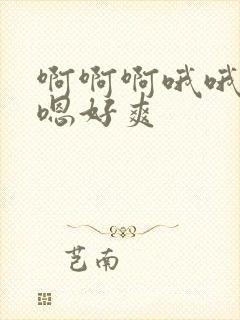 啊啊啊哦哦
嗯好爽
芑南